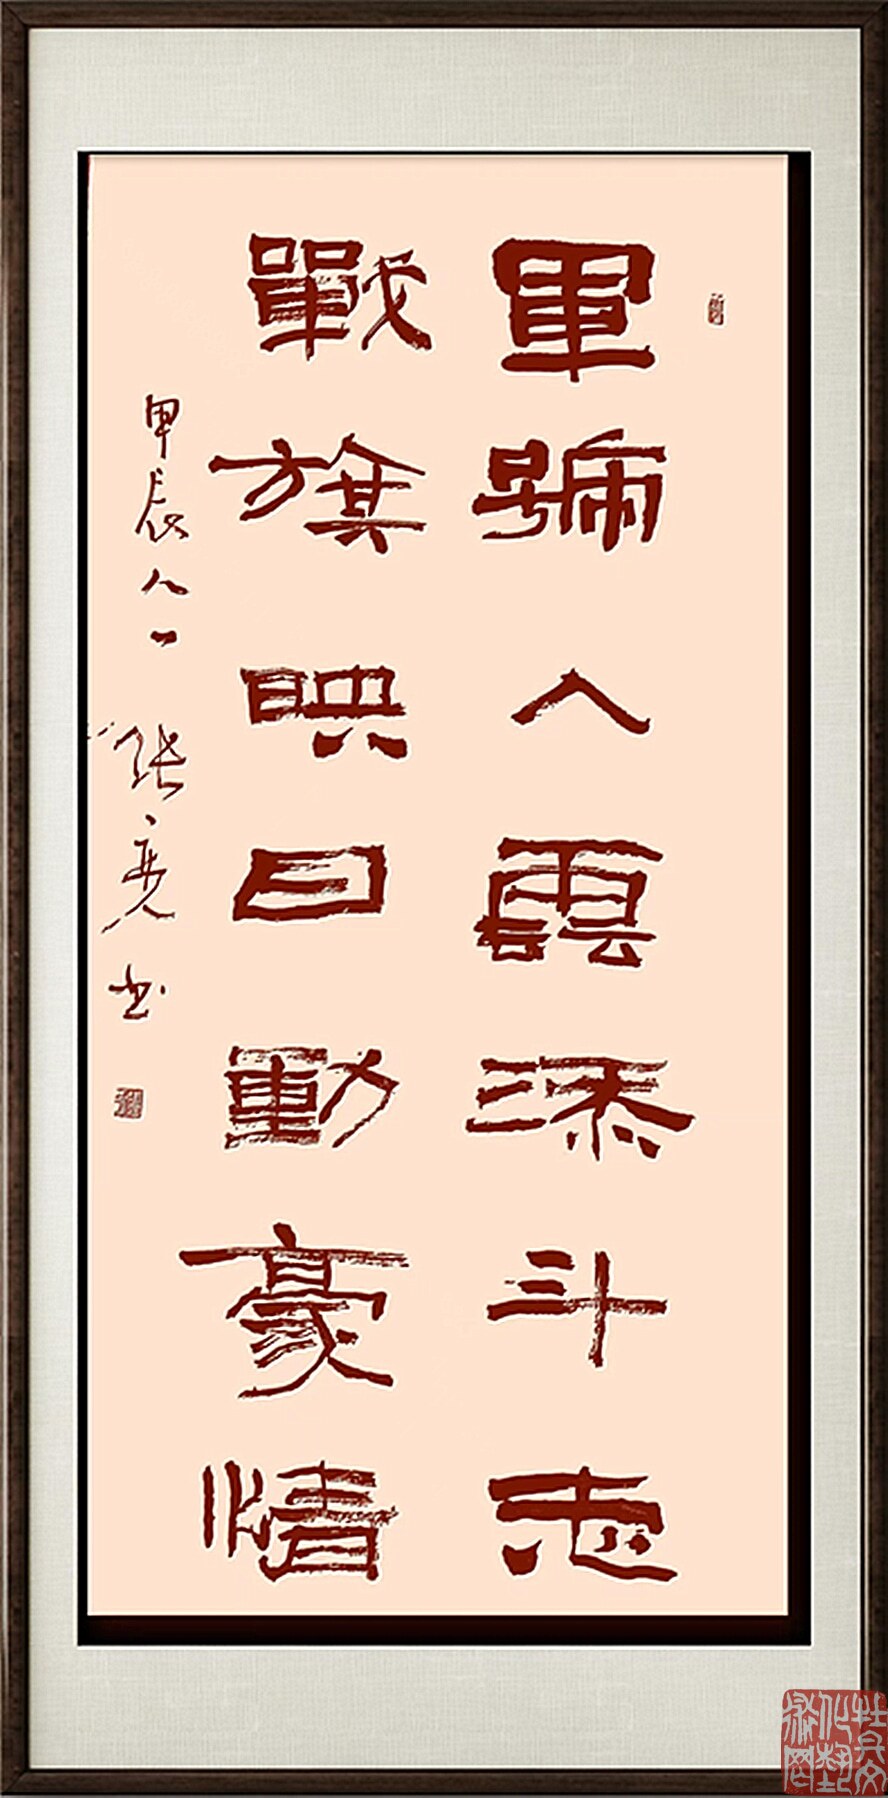 軍號入雲添斗志
戰旗映日動豪情
甲辰八一 张亮书